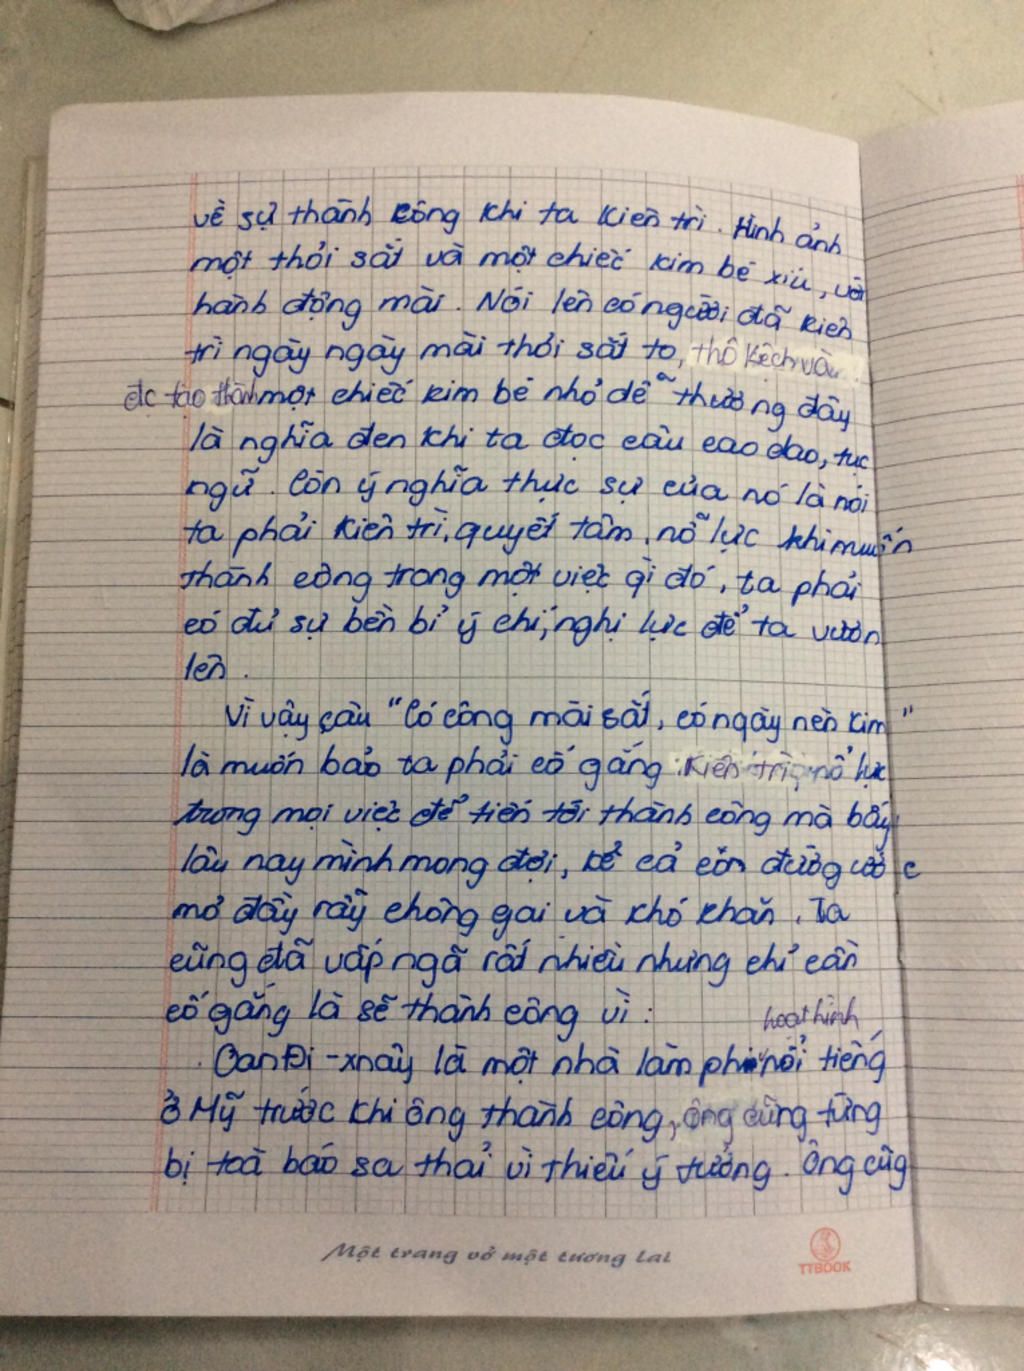 về sự thành công khi ta kiên trì. Hình ảnh
một thỏi sắt và một chiếc kim bé xíu, với
hành động mài. Nói lên có người đã kiên
trì ngày ngày mài thỏi sắt to, thô kệch và
đc tạo thành một chiếc kim bé nhỏ dễ thương đây
là nghĩa đen khi ta đọc câu cao dao, tục
ngữ. Còn ý nghĩa thực sự của nó là nói
ta phải kiên trì, quyết tâm, nỗ lực khi muốn
thành công trong một việc gì đó, ta phải
có đủ sự bền bỉ ý chí, nghị lực để ta vươn
lên.
Vì vậy câu "Có công mài sắt, có ngày nên kim"
là muốn bảo ta phải cố gắng, kiên trì, nổ lực
trong mọi việc để tiến tới thành công mà bấy
lâu nay mình mong đợi, kể cả còn đường ước
mơ đầy rẫy chông gai và khó khăn. Ta
cũng đã vấp ngã rất nhiều nhưng chỉ cần
cố gắng là sẽ thành công vì:
hoạt hình
. Oan Đi-xnây là một nhà làm phim nổi tiếng
ở Mỹ trước khi ông thành công, ông cũng từng
bị toà báo sa thải vì thiếu ý tưởng. Ông cũg
Một trang vở một tương lai
TTBOOK